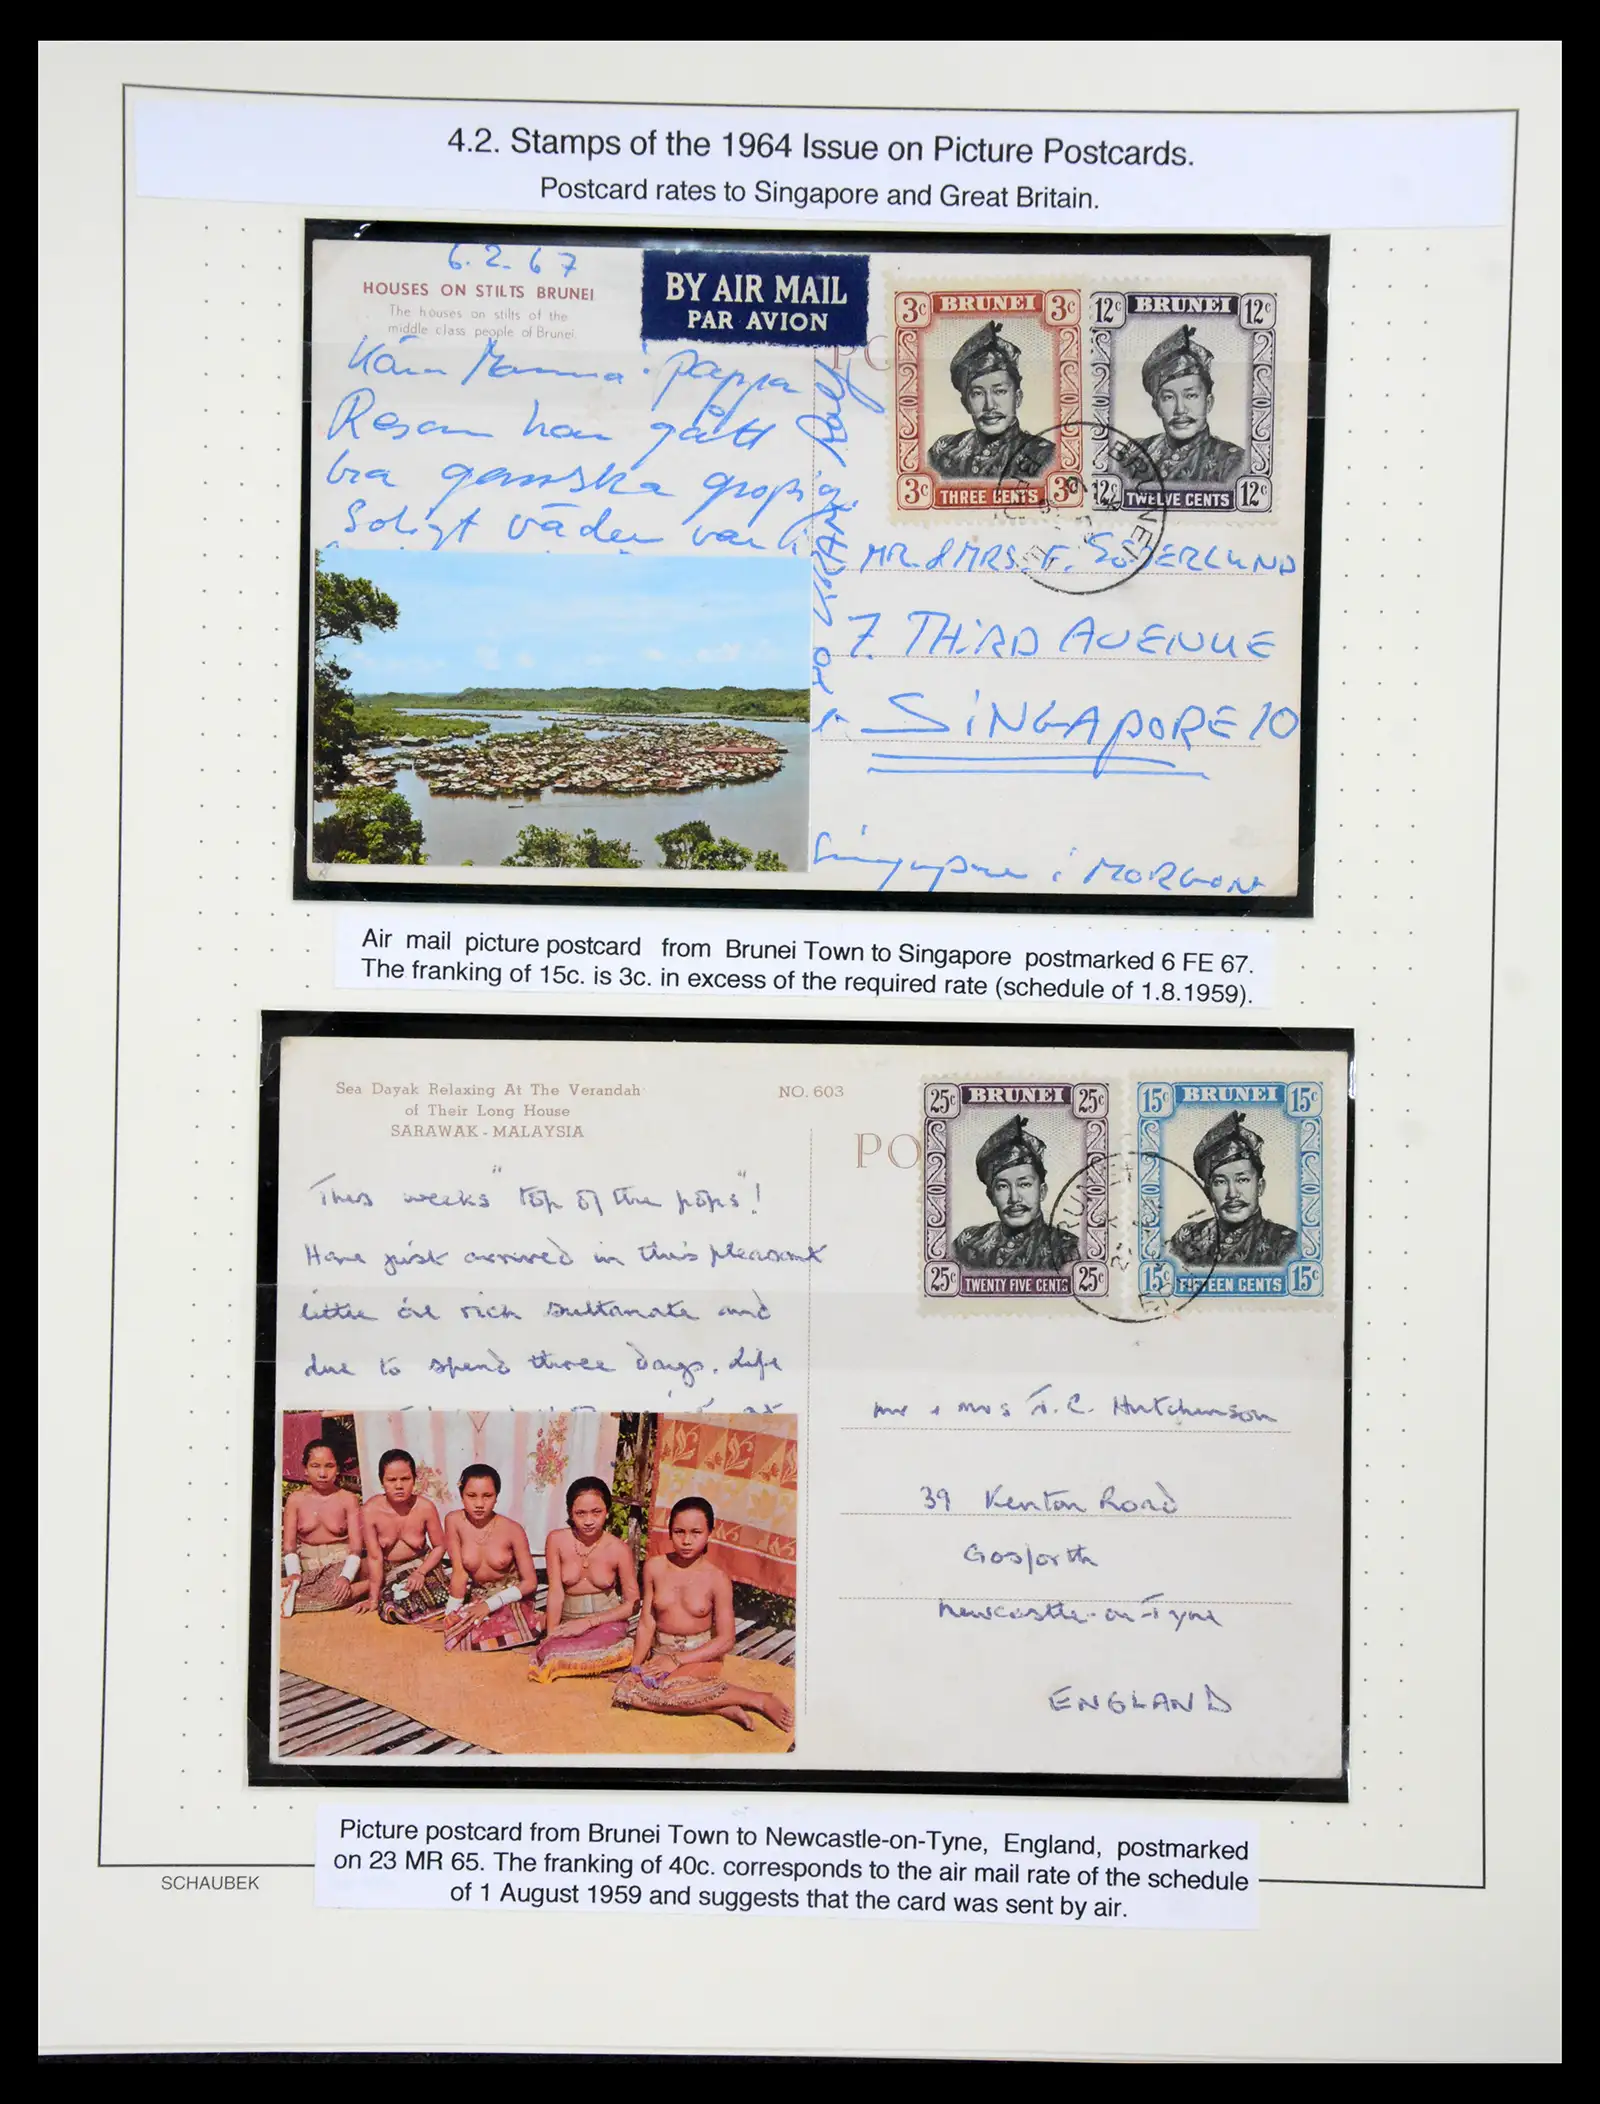 4.2. Stamps of the 1964 Issue on Picture Postcards.
Postcard rates to Singapore and Great Britain.
6.2.67
HOUSES ON STILTS BRUNEI
The houses on stilts of the
middle class people of Brunei.
BY AIR MAIL
PAR AVION
Resan har gått
bra ganska gropig.
Soligt väder var
PO
3c BRUNEI 3c
3c THREE CENTS 3c
12c BRUNEI 12c
12c TWELVE CENTS 12c
BRUNEI
MR. & MRS. F. SÖDERLUND
7. THIRD AVENUE
SINGAPORE 10
Singapore i MORGON
Air mail picture postcard from Brunei Town to Singapore postmarked 6 FE 67.
The franking of 15c. is 3c. in excess of the required rate (schedule of 1.8.1959).
Sea Dayak Relaxing At The Verandah
of Their Long House
SARAWAK - MALAYSIA
NO. 603
This weeks "top of the pops"!
Have just arrived in this pleasant
little oil rich sultanate and
due to spend three days. Life
PO
25c BRUNEI 25c
25c TWENTY FIVE CENTS 25c
15c BRUNEI 15c
15c FIFTEEN CENTS 15c
Mr & Mrs T.C. Hutchinson
39 Kenton Road
Gosforth
Newcastle-on-Tyne
ENGLAND
Picture postcard from Brunei Town to Newcastle-on-Tyne, England, postmarked
on 23 MR 65. The franking of 40c. corresponds to the air mail rate of the schedule
of 1 August 1959 and suggests that the card was sent by air.
SCHAUBEK